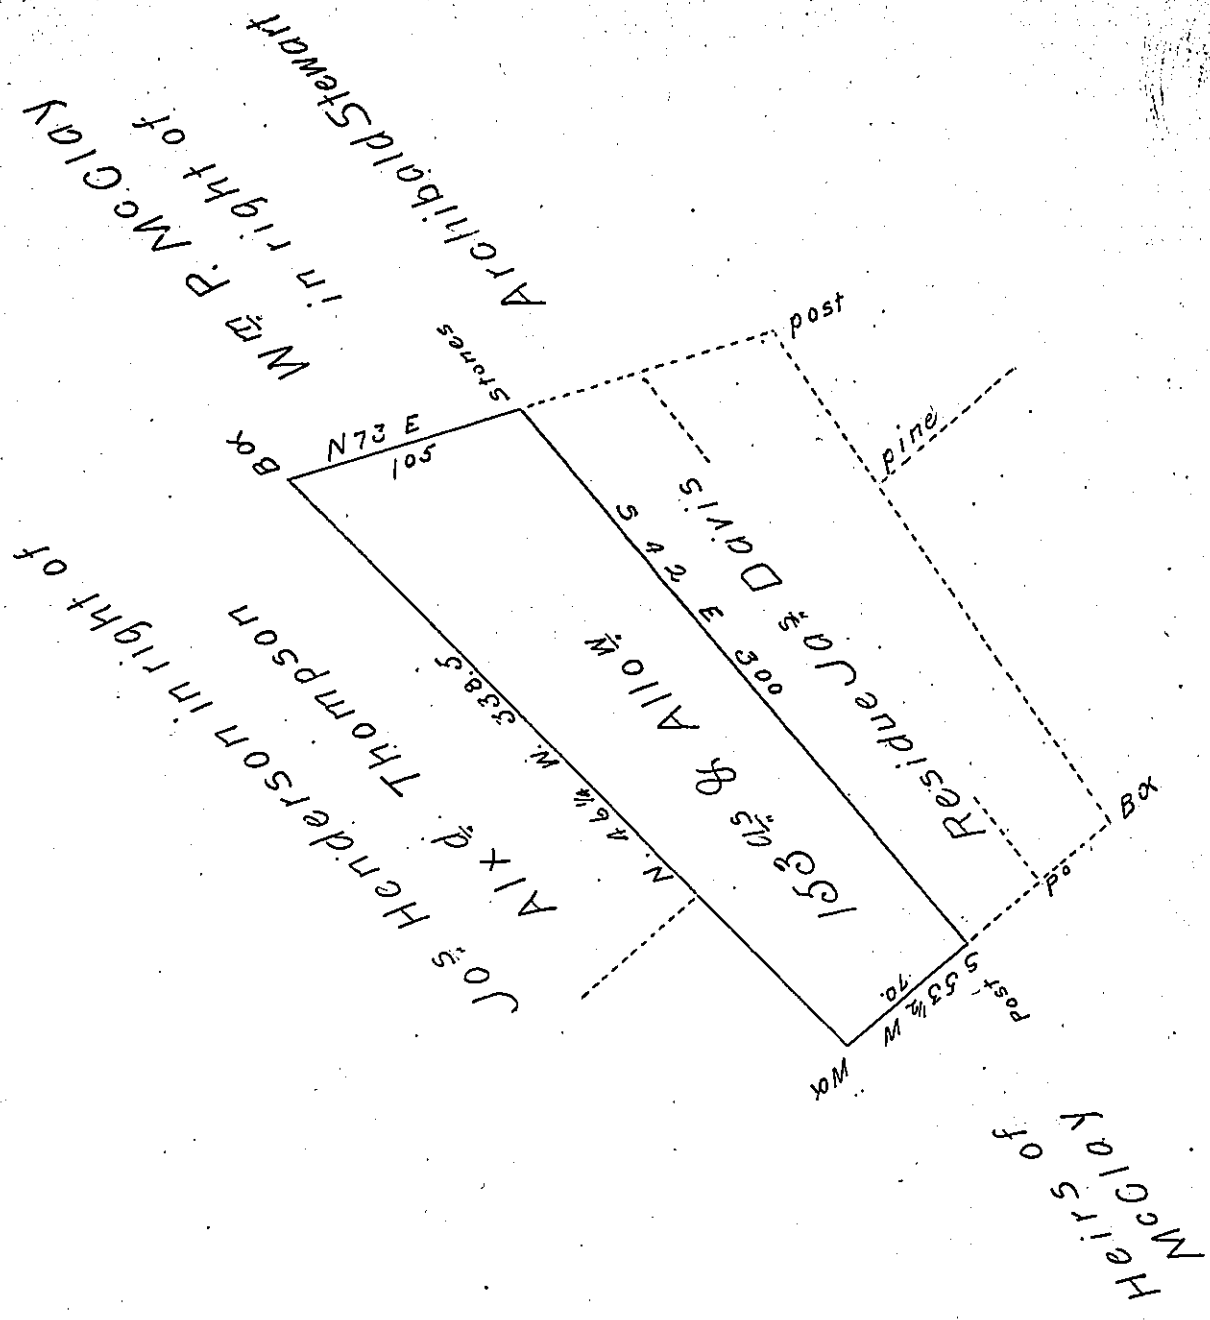 Wm P. McClay
in right of
Archibald Stewart
Stones
Bo
N 73 E
105
post
pine
S 42 E 300
Residue Jas Davis
153 as & Allow
N. 46 1/4 W. 338.5
Jos Henderson in right of
Alxd Thompson
Bo
Po
Post
S 53 1/2 W
70.
Wo
Heirs of
McClay